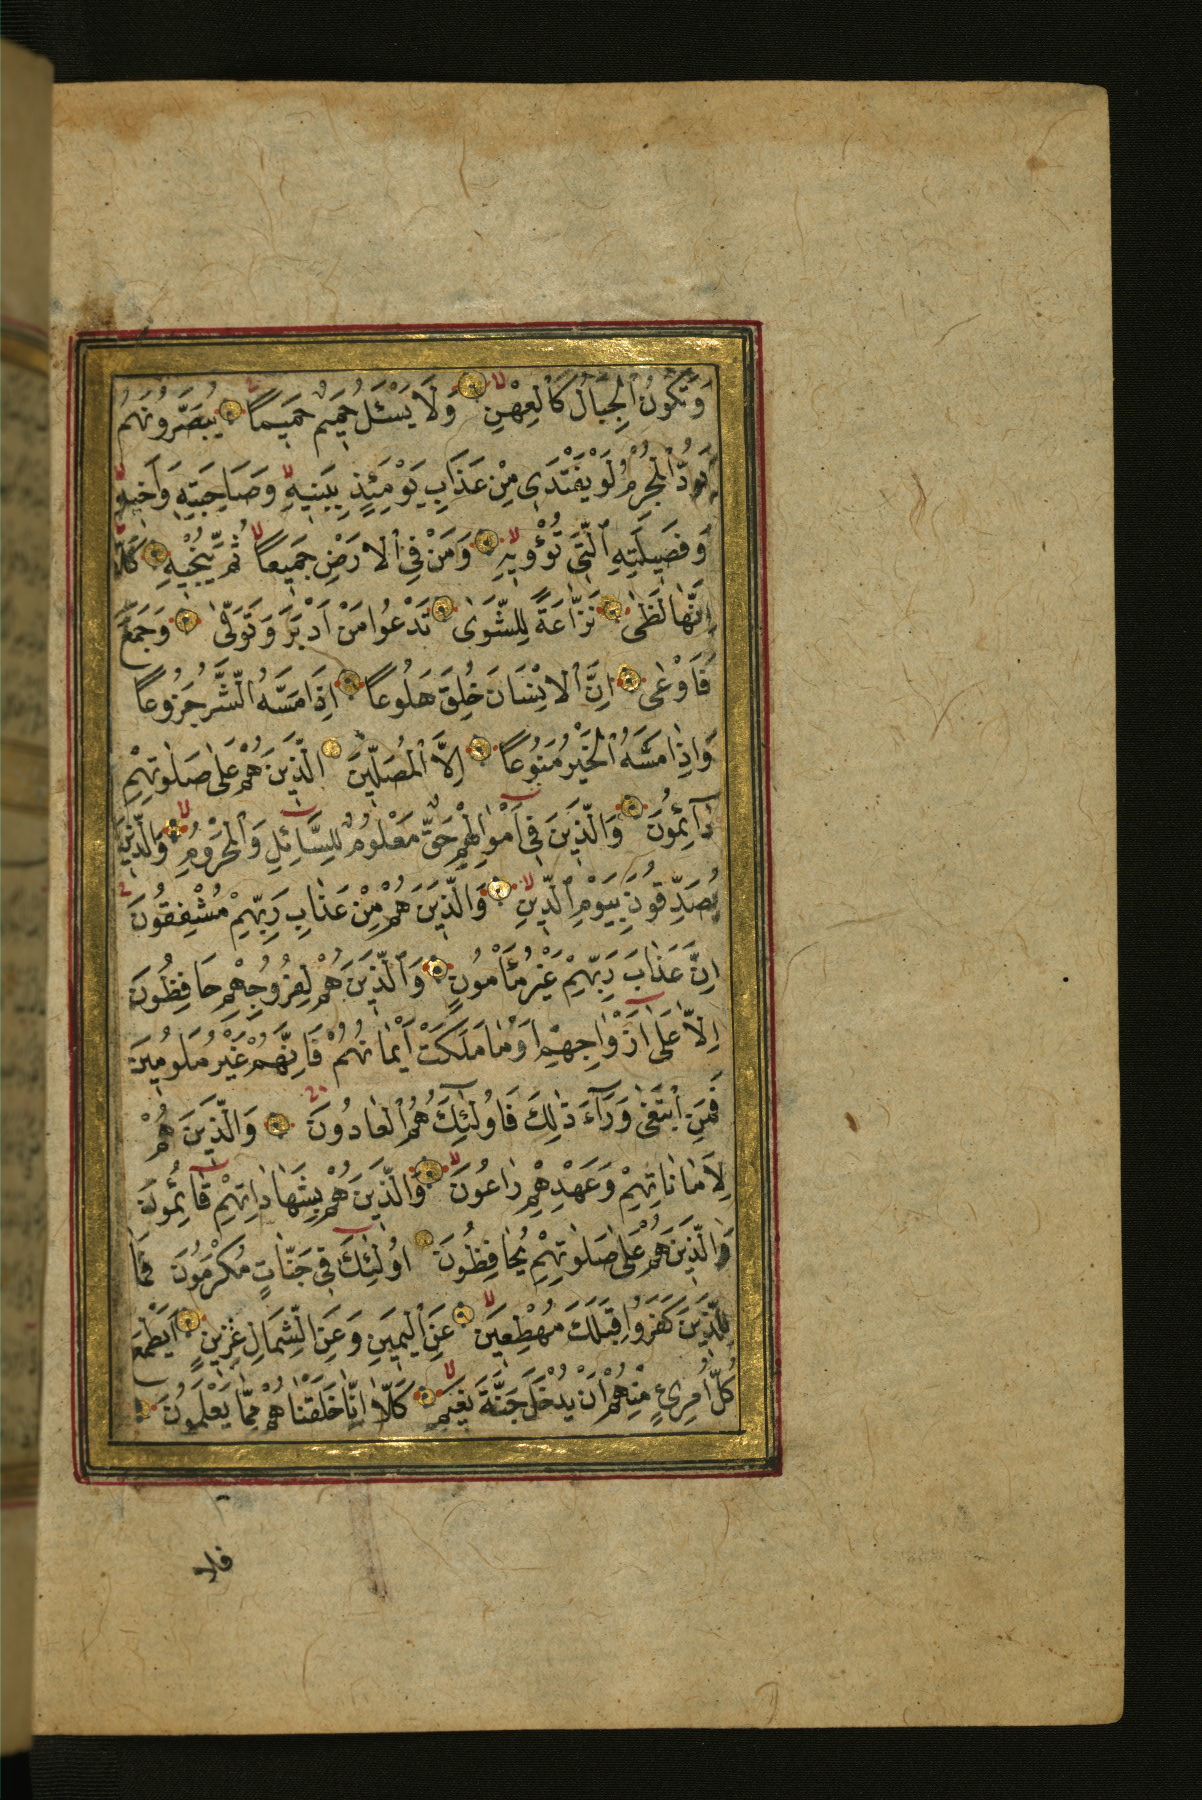 وَتَكُونُ ٱلْجِبَالُ كَالْعِهْنِ وَلَا يَسْئَلُ حَمِيمٌ حَمِيمًا يُبَصَّرُونَهُمْ
يَوَدُّ ٱلْمُجْرِمُ لَوْ يَفْتَدِى مِنْ عَذَابِ يَوْمَئِذٍ بِبَنِيهِ وَصَاحِبَتِهِ وَاَخِيهِ
وَفَصِيلَتِهِ ٱلَّتِى تُؤْوِيهِ وَمَنْ فِى ٱلاَرْضِ جَمِيعًا ثُمَّ يُنْجِيهِ كَلَّا
اِنَّهَا لَظٰى نَزَّاعَةً لِلشَّوٰى تَدْعُوا مَنْ اَدْبَرَ وَتَوَلّٰى وَجَمَعَ
فَاَوْعٰى اِنَّ ٱلاِنْسَانَ خُلِقَ هَلُوعًا اِذَا مَسَّهُ ٱلشَّرُّ جَزُوعًا
وَاِذَا مَسَّهُ ٱلْخَيْرُ مَنُوعًا اِلَّا ٱلْمُصَلِّينَ الَّذِينَ هُمْ عَلٰى صَلٰوتِهِمْ
دَآئِمُونَ وَالَّذِينَ فِى اَمْوَالِهِمْ حَقٌّ مَعْلُومٌ لِلسَّآئِلِ وَٱلْمَحْرُومِ وَالَّذِينَ
يُصَدِّقُونَ بِيَوْمِ ٱلدِّينِ وَالَّذِينَ هُمْ مِنْ عَذَابِ رَبِّهِمْ مُشْفِقُونَ
اِنَّ عَذَابَ رَبِّهِمْ غَيْرُ مَأْمُونٍ وَٱلَّذِينَ هُمْ لِفُرُوجِهِمْ حَافِظُونَ
اِلَّا عَلٰٓى اَزْوَاجِهِمْ اَوْ مَا مَلَكَتْ اَيْمَانُهُمْ فَاِنَّهُمْ غَيْرُ مَلُومِينَ
فَمَنِ ٱبْتَغٰى وَرَآءَ ذٰلِكَ فَاُولٰٓئِكَ هُمُ ٱلْعَادُونَ وَالَّذِينَ هُمْ
لِاَمَانَاتِهِمْ وَعَهْدِهِمْ رَاعُونَ وَالَّذِينَ هُمْ بِشَهَادَاتِهِمْ قَآئِمُونَ
وَالَّذِينَ هُمْ عَلٰى صَلٰوتِهِمْ يُحَافِظُونَ اُولٰٓئِكَ فِى جَنَّاتٍ مُكْرَمُونَ فَمَا
لِلَّذِينَ كَفَرُوا قِبَلَكَ مُهْطِعِينَ عَنِ ٱلْيَمِينِ وَعَنِ ٱلشِّمَالِ عِزِينَ اَيَطْمَعُ
كُلُّ ٱمْرِئٍ مِنْهُمْ اَنْ يُدْخَلَ جَنَّةَ نَعِيمٍ كَلَّآ اِنَّا خَلَقْنَاهُمْ مِمَّا يَعْلَمُونَ
فلا